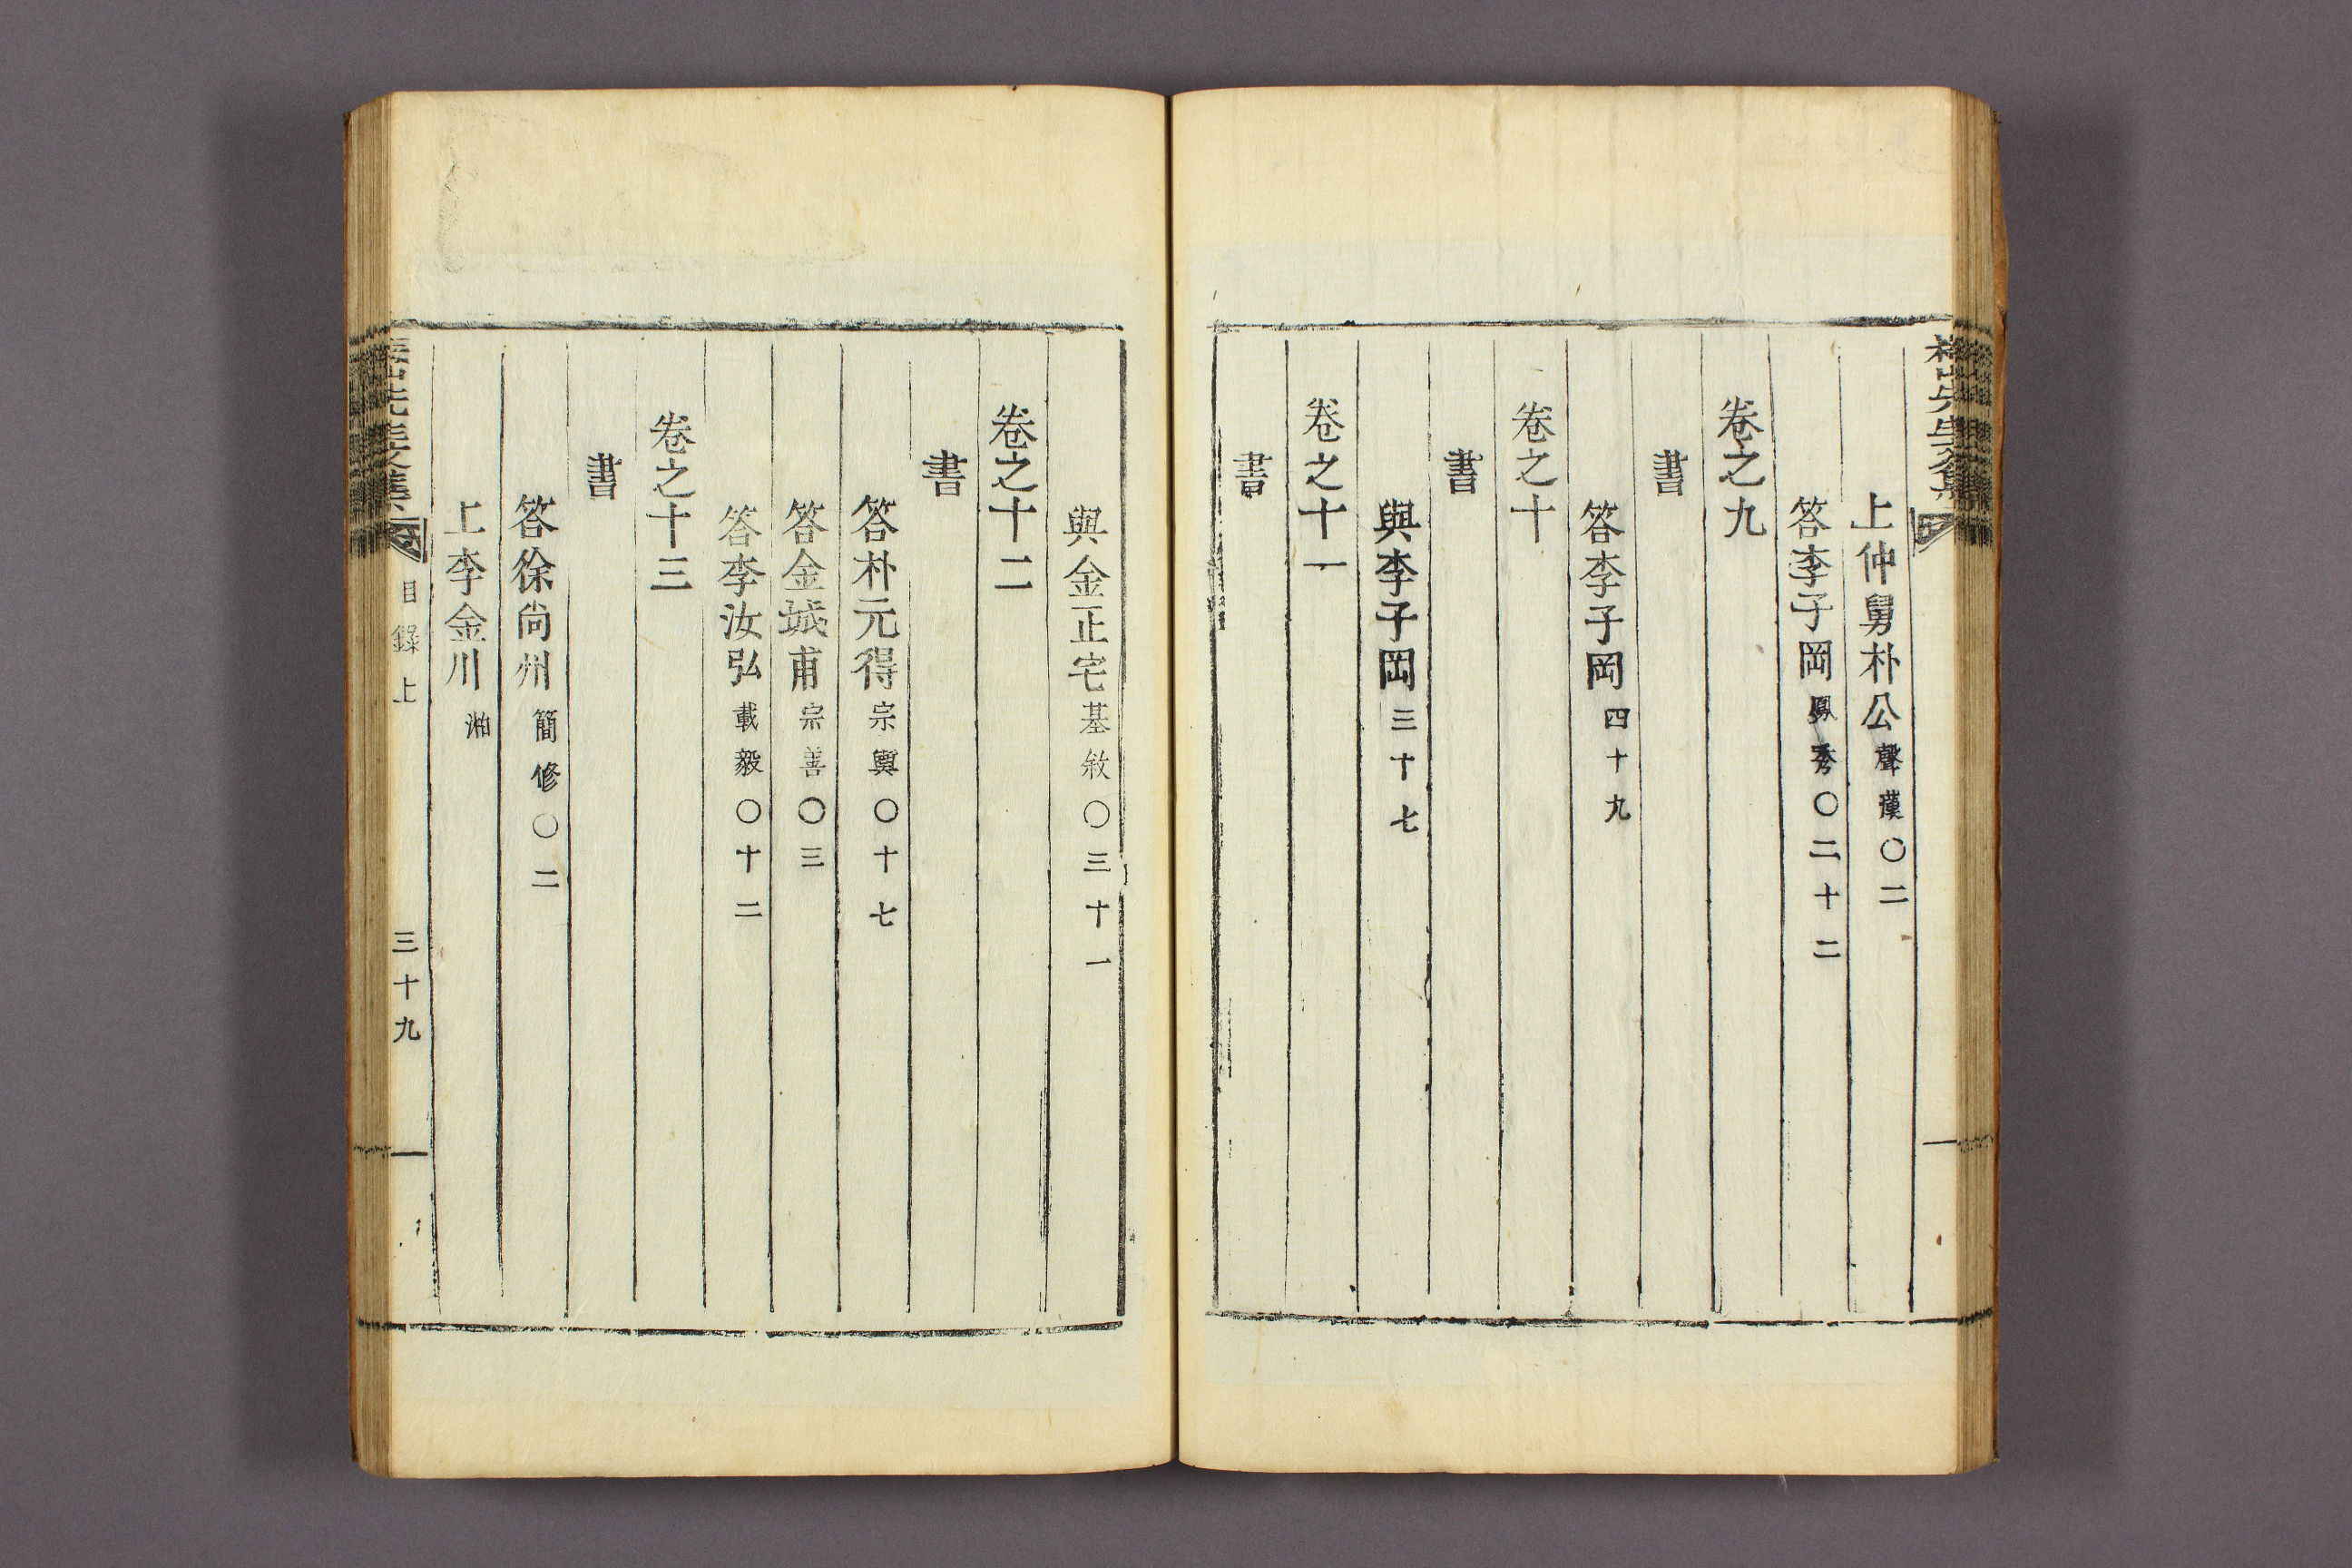 上仲舅朴公聲漢○二
答李子岡鳳秀○二十二
卷之九
書
答李子岡四十九
卷之十
書
與李子岡三十七
卷之十一
書
與金正宅基敘○三十一
卷之十二
書
答朴元得宗輿○十七
答金城甫宗善○三
答李汝弘載毅○十二
卷之十三
書
答徐尙州簡修○二
上李金川
目錄上
三十九